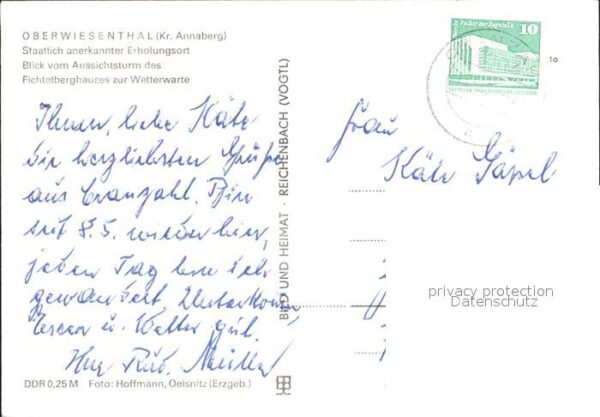 OBERWIESENTHAL (Kr. Annaberg)
Staatlich anerkannter Erholungsort
Blick vom Aussichtsturm des
Fichtelberghauses zur Wetterwarte
Ihnen, liebe Käte
die herzliebsten Grüße
aus Cranzahl. Bin
seit 8.5. wieder hier,
jeden Tag bin ich
gewandert.
u. Walter gut.
Ihre Müller
DDR 0,25 M Foto: Hoffmann, Oelsnitz (Erzgeb.)
BILD UND HEIMAT · REICHENBACH (VOGTL)
Palast der Republik 10
Frau
Käte Göpel
privacy protection
Datenschutz
to